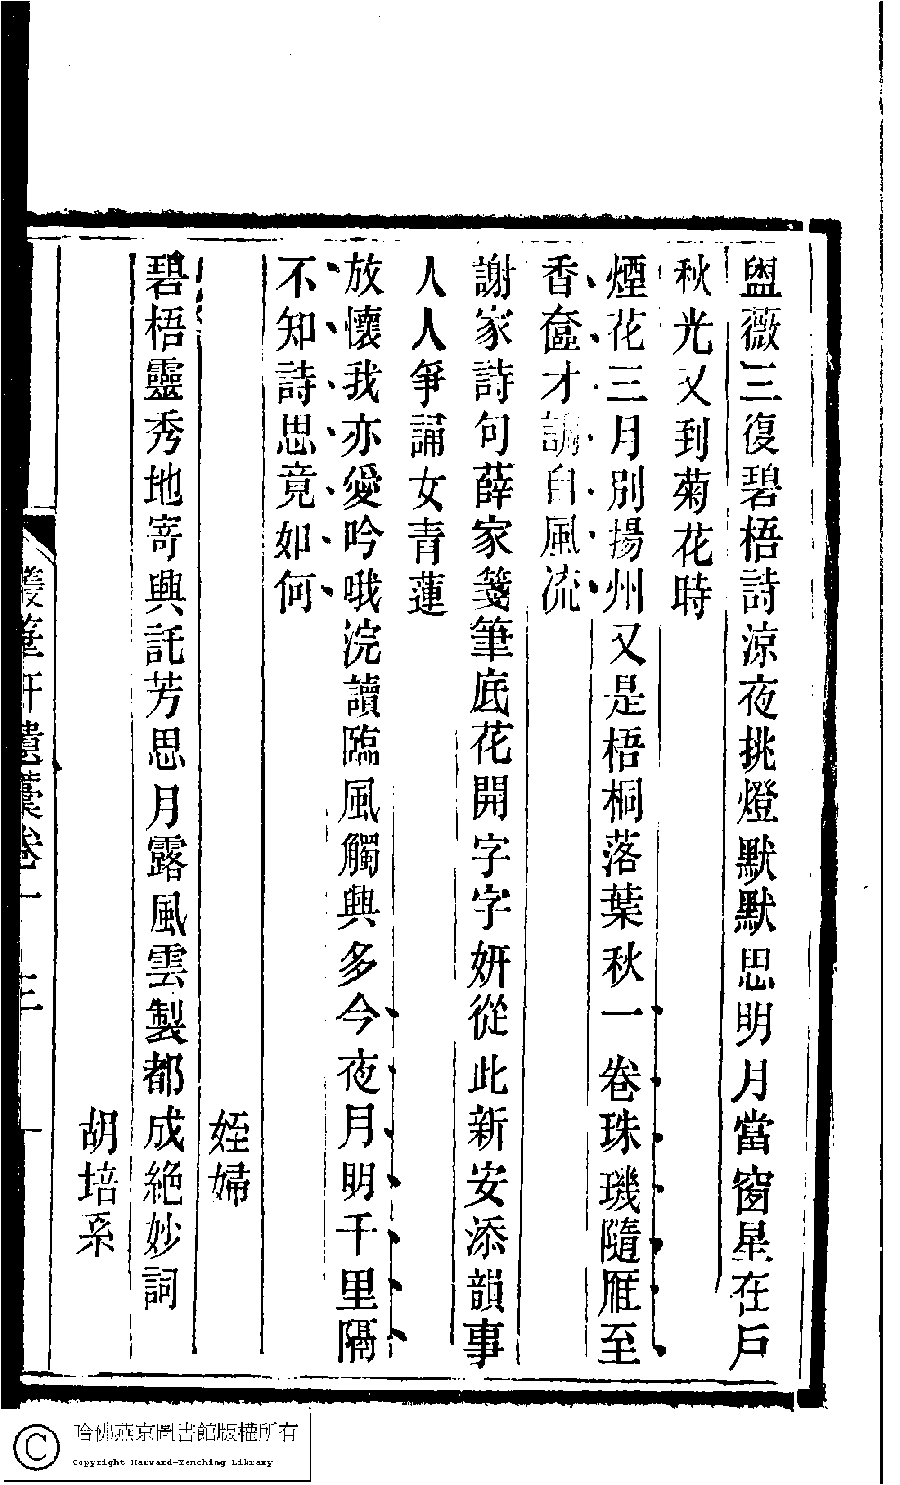 盥薇三復碧梧詩涼夜挑燈默默思明月當窗星在戶
秋光又到菊花時
煙花三月別揚州又是梧桐落葉秋一卷珠璣隨雁至
香奩才調自風流
謝家詩句薛家箋筆底花開字字妍從此新安添韻事
人人爭誦女青蓮
放懷我亦愛吟哦浣讀臨風觸興多今夜月明千里隔
不知詩思竟如何
姪婦
碧梧靈秀地寄興託芳思月露風雲製都成絕妙詞
胡培系
叢筆軒遺藁卷一
三
哈佛燕京圖書館版權所有
Copyright Harvard-Yenching Library